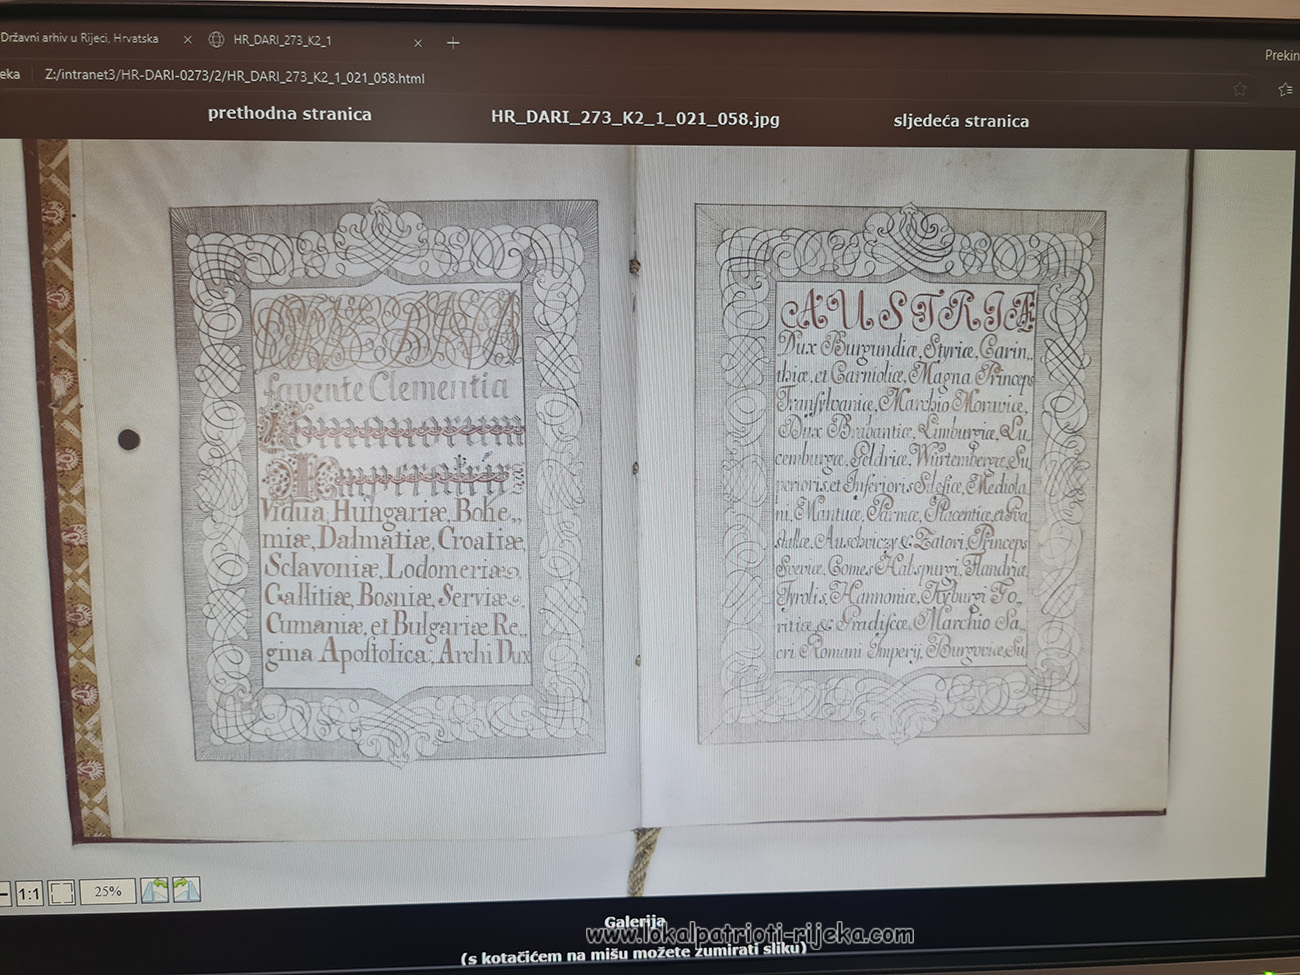 Državni arhiv u Rijeci, Hrvatska
HR_DARI_273_K2_1
Prekin
eka
Z:/intranet3/HR-DARI-0273/2/HR_DARI_273_K2_1_021_058.html
prethodna stranica
HR_DARI_273_K2_1_021_058.jpg
sljedeća stranica
favente Clementia
Romanorum
Imperatrix
Vidua, Hungariæ, Bohe„
miæ, Dalmatiæ, Croatiæ,
Sclavoniæ, Lodomeriæ,
Gallitiæ, Bosniæ, Serviæ,
Cumaniæ, et Bulgariæ Re„
gina Apoſtolica, Archi Dux
AUSTRIÆ
Dux Burgundiæ, Styriæ, Carin„
thiæ, et Carnioliæ, Magna Princeps
Tranſylvaniæ, Marchio Moraviæ,
Dux Brabantiæ, Limburgiæ, Lu„
cemburgæ, Geldriæ, Würtembergæ, Su
perioris, et Inferioris Sileſiæ, Mediola
ni, Mantuæ, Parmæ, Placentiæ, et Gva
stallæ, Auschviczy & Zatori, Princeps
Sveviæ, Comes Habspurgi, Flandriæ,
Tyrolis, Hannoniæ, Kyburgi Go„
ritiæ & Gradiſcæ, Marchio Sa„
cri Romani Imperij, Burgoviæ, Su
1:1
25%
Galerija
www.lokalpatrioti-rijeka.com
(s kotačićem na mišu možete zumirati sliku)